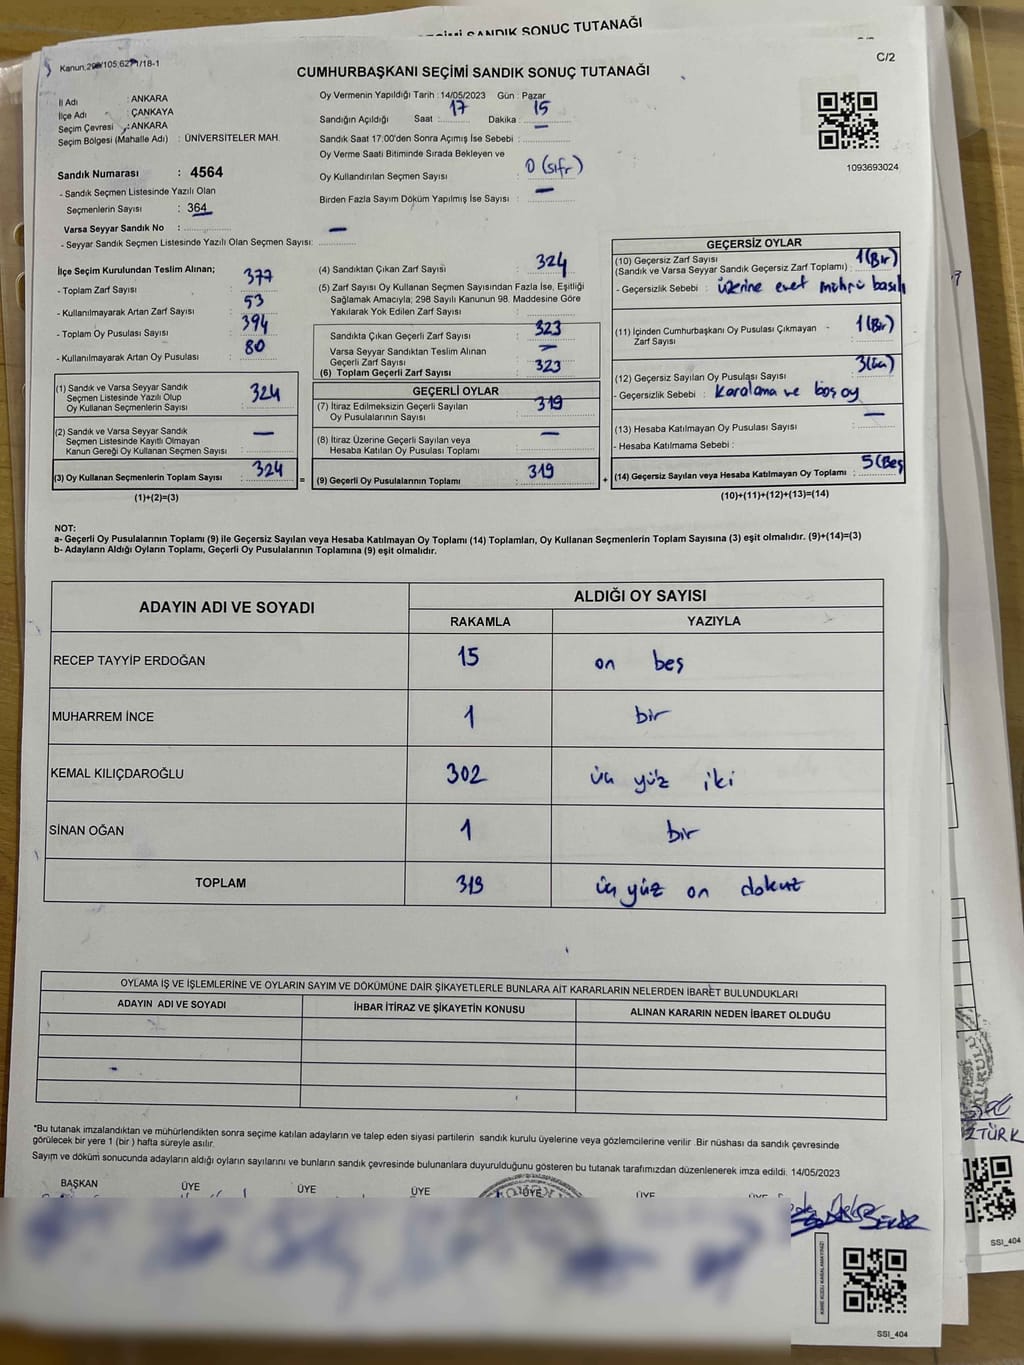 SANDIK SONUÇ TUTANAĞI
C/2
CUMHURBAŞKANI SEÇİMİ SANDIK SONUÇ TUTANAĞI
İl Adı : ANKARA
İlçe Adı : ÇANKAYA
Seçim Çevresi : ANKARA
Seçim Bölgesi (Mahalle Adı) : ÜNİVERSİTELER MAH.
Sandık Numarası : 4564
- Sandık Seçmen Listesinde Yazılı Olan
Seçmenlerin Sayısı : 364
Varsa Seyyar Sandık No : —
- Seyyar Sandık Seçmen Listesinde Yazılı Olan Seçmen Sayısı:
Oy Vermenin Yapıldığı Tarih : 14/05/2023 Gün : Pazar
Sandığın Açıldığı Saat : 17 Dakika : 15
Sandık Saat 17:00'den Sonra Açımış İse Sebebi : —
Oy Verme Saati Bitiminde Sırada Bekleyen ve
Oy Kullandırılan Seçmen Sayısı : 0 (sıfır)
Birden Fazla Sayım Döküm Yapılmış İse Sayısı : —
1093693024
İlçe Seçim Kurulundan Teslim Alınan;
- Toplam Zarf Sayısı : 377
- Kullanılmayarak Artan Zarf Sayısı : 53
- Toplam Oy Pusulası Sayısı : 394
- Kullanılmayarak Artan Oy Pusulası : 80
(1) Sandık ve Varsa Seyyar Sandık
Seçmen Listesinde Yazılı Olup
Oy Kullanan Seçmenlerin Sayısı : 324
(2) Sandık ve Varsa Seyyar Sandık
Seçmen Listesinde Kayıtlı Olmayan
Kanun Gereği Oy Kullanan Seçmen Sayısı : —
(3) Oy Kullanan Seçmenlerin Toplam Sayısı : 324
(1)+(2)=(3)
=
(4) Sandıktan Çıkan Zarf Sayısı : 324
(5) Zarf Sayısı Oy Kullanan Seçmen Sayısından Fazla İse, Eşitliği
Sağlamak Amacıyla; 298 Sayılı Kanunun 98. Maddesine Göre
Yakılarak Yok Edilen Zarf Sayısı :
Sandıkta Çıkan Geçerli Zarf Sayısı : 323
Varsa Seyyar Sandıktan Teslim Alınan
Geçerli Zarf Sayısı : —
(6) Toplam Geçerli Zarf Sayısı : 323
GEÇERLİ OYLAR
(7) İtiraz Edilmeksizin Geçerli Sayılan
Oy Pusulalarının Sayısı : 319
(8) İtiraz Üzerine Geçerli Sayılan veya
Hesaba Katılan Oy Pusulası Toplamı : —
(9) Geçerli Oy Pusulalarının Toplamı : 319
+
GEÇERSİZ OYLAR
(10) Geçersiz Zarf Sayısı
(Sandık ve Varsa Seyyar Sandık Geçersiz Zarf Toplamı) : 1 (Bir)
- Geçersizlik Sebebi : üzerine evet mührü basılı
(11) İçinden Cumhurbaşkanı Oy Pusulası Çıkmayan
Zarf Sayısı : 1 (Bir)
(12) Geçersiz Sayılan Oy Pusulası Sayısı : 3 (üç)
- Geçersizlik Sebebi : Karalama ve boş oy
(13) Hesaba Katılmayan Oy Pusulası Sayısı : —
- Hesaba Katılmama Sebebi :
(14) Geçersiz Sayılan veya Hesaba Katılmayan Oy Toplamı : 5 (Beş
(10)+(11)+(12)+(13)=(14)
NOT:
a- Geçerli Oy Pusulalarının Toplamı (9) ile Geçersiz Sayılan veya Hesaba Katılmayan Oy Toplamı (14) Toplamları, Oy Kullanan Seçmenlerin Toplam Sayısına (3) eşit olmalıdır. (9)+(14)=(3)
b- Adayların Aldığı Oyların Toplamı, Geçerli Oy Pusulalarının Toplamına (9) eşit olmalıdır.
ADAYIN ADI VE SOYADI
ALDIĞI OY SAYISI
RAKAMLA YAZIYLA
RECEP TAYYİP ERDOĞAN 15 on beş
MUHARREM İNCE 1 bir
KEMAL KILIÇDAROĞLU 302 üç yüz iki
SİNAN OĞAN 1 bir
TOPLAM 319 üç yüz on dokuz
OYLAMA İŞ VE İŞLEMLERİNE VE OYLARIN SAYIM VE DÖKÜMÜNE DAİR ŞİKAYETLERLE BUNLARA AİT KARARLARIN NELERDEN İBARET BULUNDUKLARI
ADAYIN ADI VE SOYADI İHBAR İTİRAZ VE ŞİKAYETİN KONUSU ALINAN KARARIN NEDEN İBARET OLDUĞU
*Bu tutanak imzalandıktan ve mühürlendikten sonra seçime katılan adayların ve talep eden siyasi partilerin sandık kurulu üyelerine veya gözlemcilerine verilir .Bir nüshası da sandık çevresinde
görülecek bir yere 1 (bir ) hafta süreyle asılır.
Sayım ve döküm sonucunda adayların aldığı oyların sayılarını ve bunların sandık çevresinde bulunanlara duyurulduğunu gösteren bu tutanak tarafımızdan düzenlenerek imza edildi. 14/05/2023
BAŞKAN ÜYE ÜYE ÜYE ÜYE ÜYE ÜYE
SSI_404
SSI_404